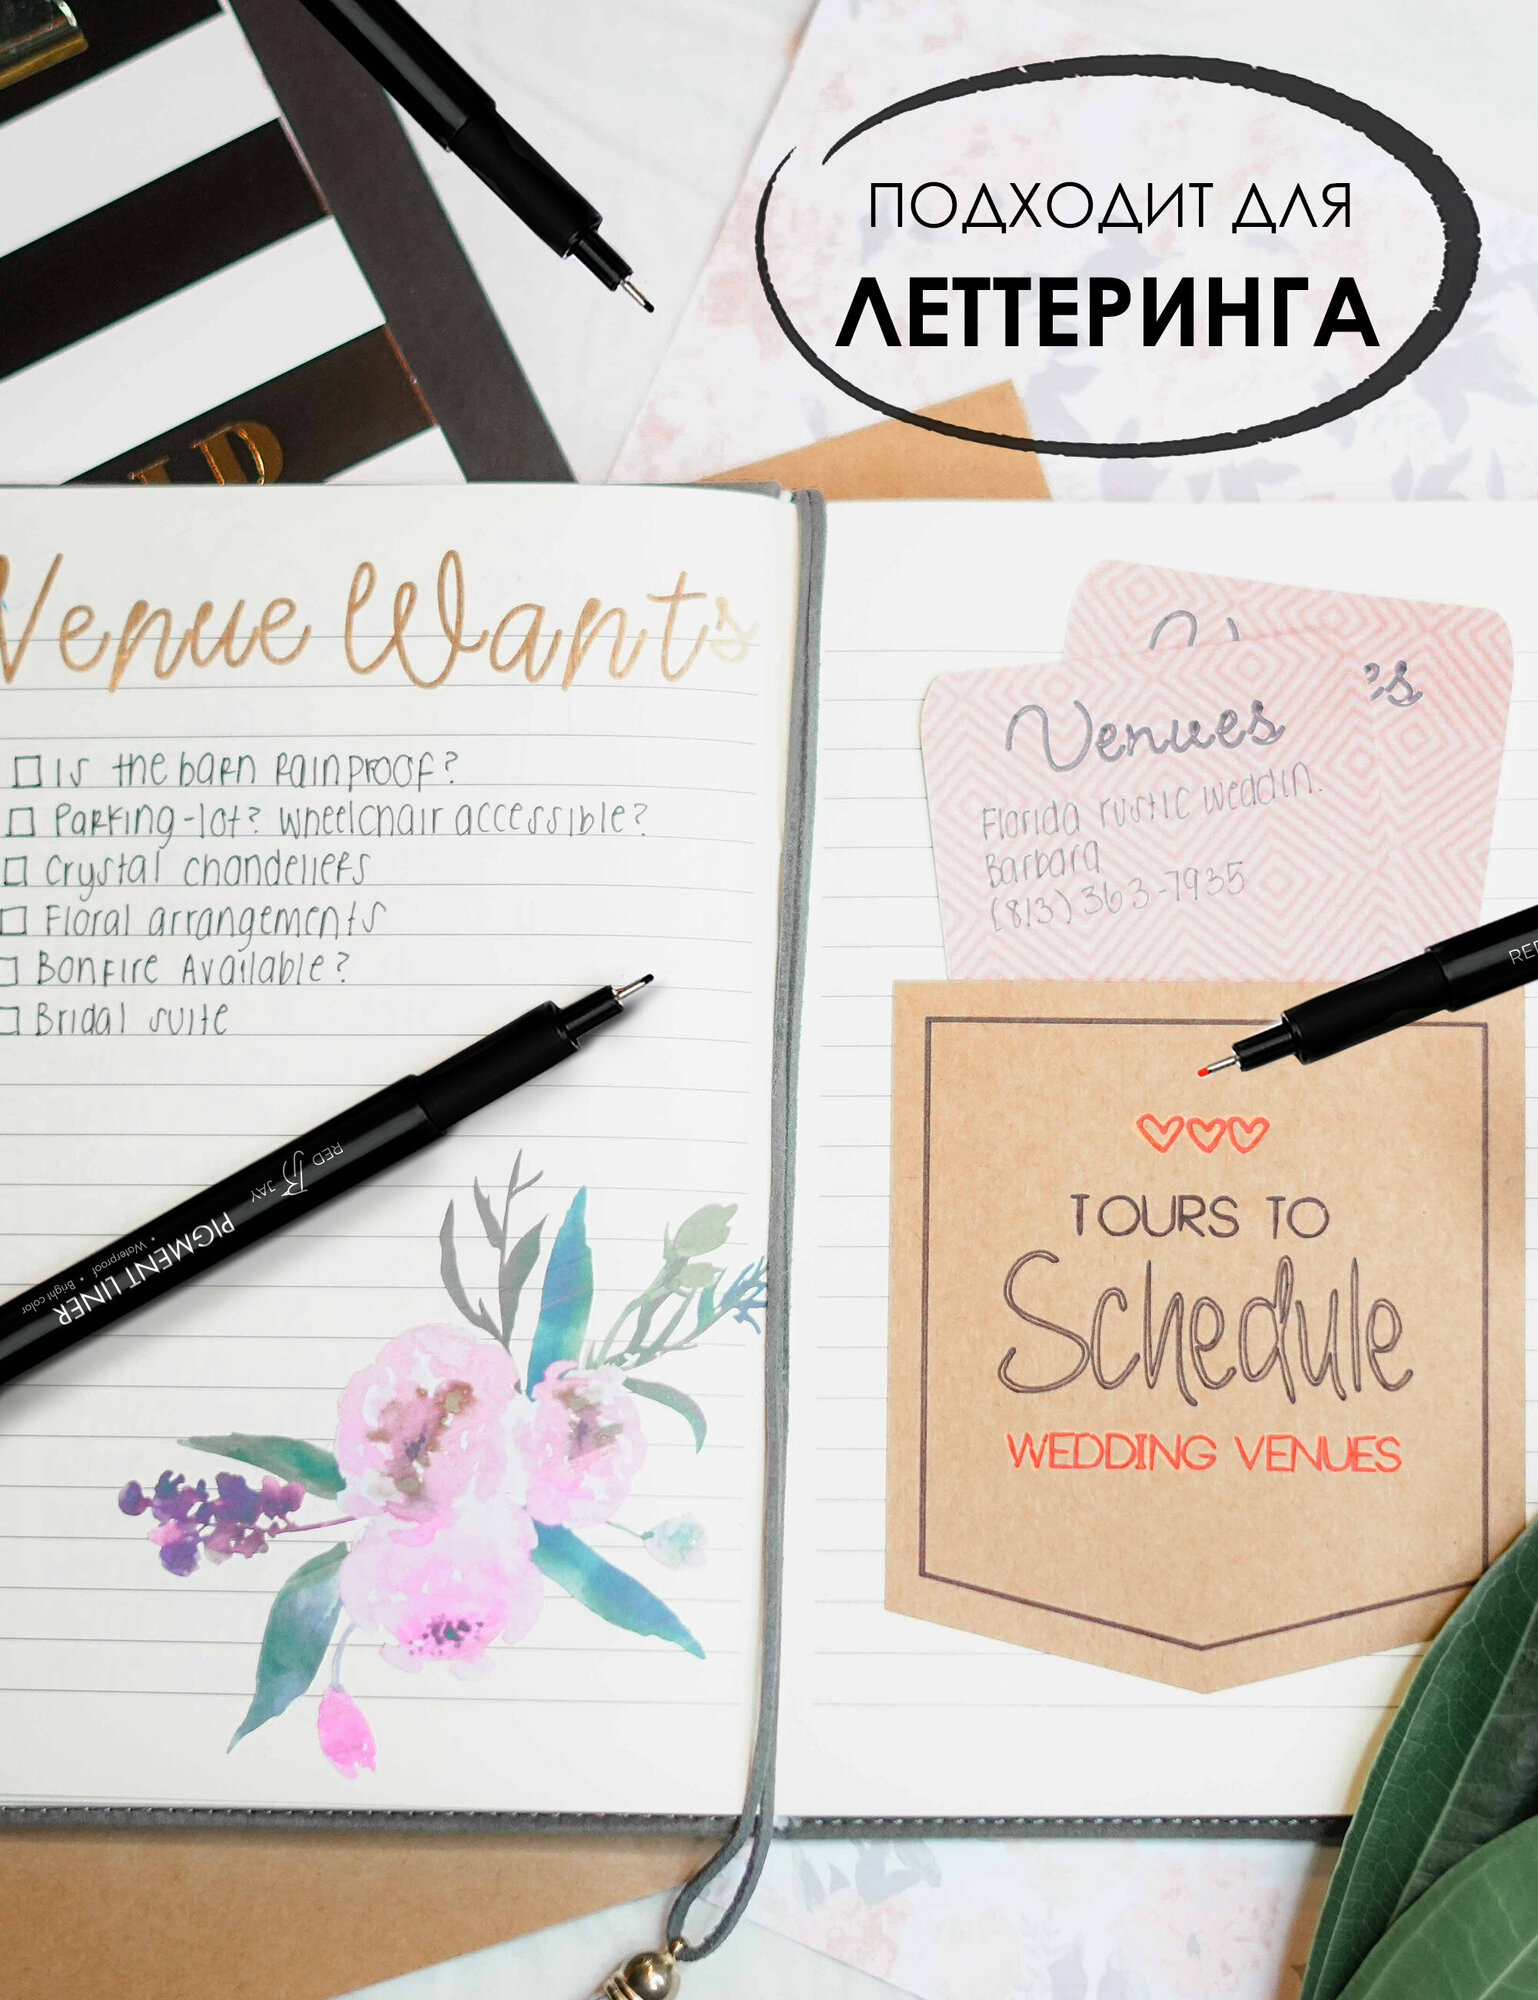 ПОДХОДИТ ДЛЯ
ЛЕТТЕРИНГА
Venue Wants
Is the barn rainproof?
Parking-lot? wheelchair accessible?
Crystal chandeliers
Floral arrangements
Bonfire Available?
Bridal suite
RED B JAY
PIGMENT LINER
Waterproof • Bright color
's
Venues
Florida rustic weddin.
Barbara
(813) 363-7935
RED
TOURS TO
Schedule
WEDDING VENUES